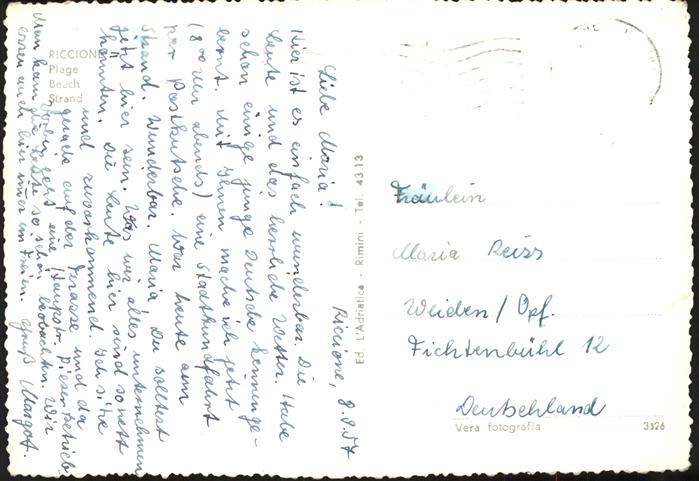 RICCIONE
Plage
Beach
Strand
Riccione, 8.9.57
Liebe Maria!
Hier ist es einfach wunderbar. Die
Leute und das herrliche Wetter. Habe
schon einige junge Deutsche kennenge-
lernt. Mit Ihnen mache ich jetzt
(8 00 Uhr abends) eine Stadtrundfahrt
per Postkutsche. War heute am
Strand. Wunderbar. Maria Du solltest
jetzt hier sein. Was wir alles unternehmen
könnten. Die Leute hier sind so nett
und zuvorkommend. Ich sitze
gerade auf der Terasse und da
vorbei geht eine Hauptstr. Diesen Betrieb
kann die Leute so schön beobachten. Wir
essen auch hier immer im Freien. Gruß Margot.
Ed. L'Adriatica - Rimini - Tel. 43.13
Fräulein
Maria Reiss
Weiden / Opf.
Fichtenbühl 12
Deutschland
Vera fotografia 3526